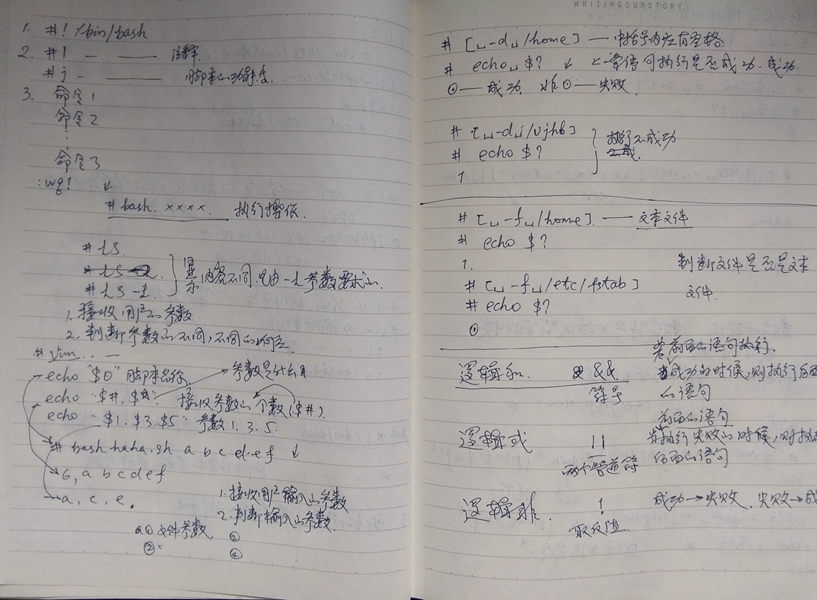 1. #! /bin/bash
2. #! — —— 注释
# j — —— 脚本的功能
3. 命令1
命令2
命令3
:wq!
# bash. ××××. 执行
# ls
# ls
# ls -l
显示内容不同,是由 -l 参数
1. 接收用户的参数
2. 判断参数的不同,不同的响应
# vim . . . —
echo "$0" 脚本名称 参数是什么
echo "$#. $*" 接收参数的个数 ($#)
echo "$1. $3. $5" 参数1. 3. 5.
# bash haha.sh a b c d e f
6, a b c d e f
a, c, e,
1. 接收用户输入的参数
2. 判断输入的参数
文件参数
②
③
④
WRITING OUR STORY
# [␣-d␣/home] — 中括号内应有空格
# echo␣$? 语句执行是否成功. 成功
⓪ — 成功. 非⓪ — 失败.
# [␣-d␣/ujhb]
# echo $?
1
执行不成功
# [␣-f␣/home]. — 文本文件
# echo $?
1.
判断文件是否是文本
文件.
# [␣-f␣/etc/fstab]
# echo $?
⓪
逻辑和 && 符号
若前面的语句执行
成功的时候,则执行后面
的语句
逻辑或 || 两个管道符
前面的语句
执行失败的时候,则执
后面的语句
逻辑非. ! 取反值.
成功→失败. 失败→成